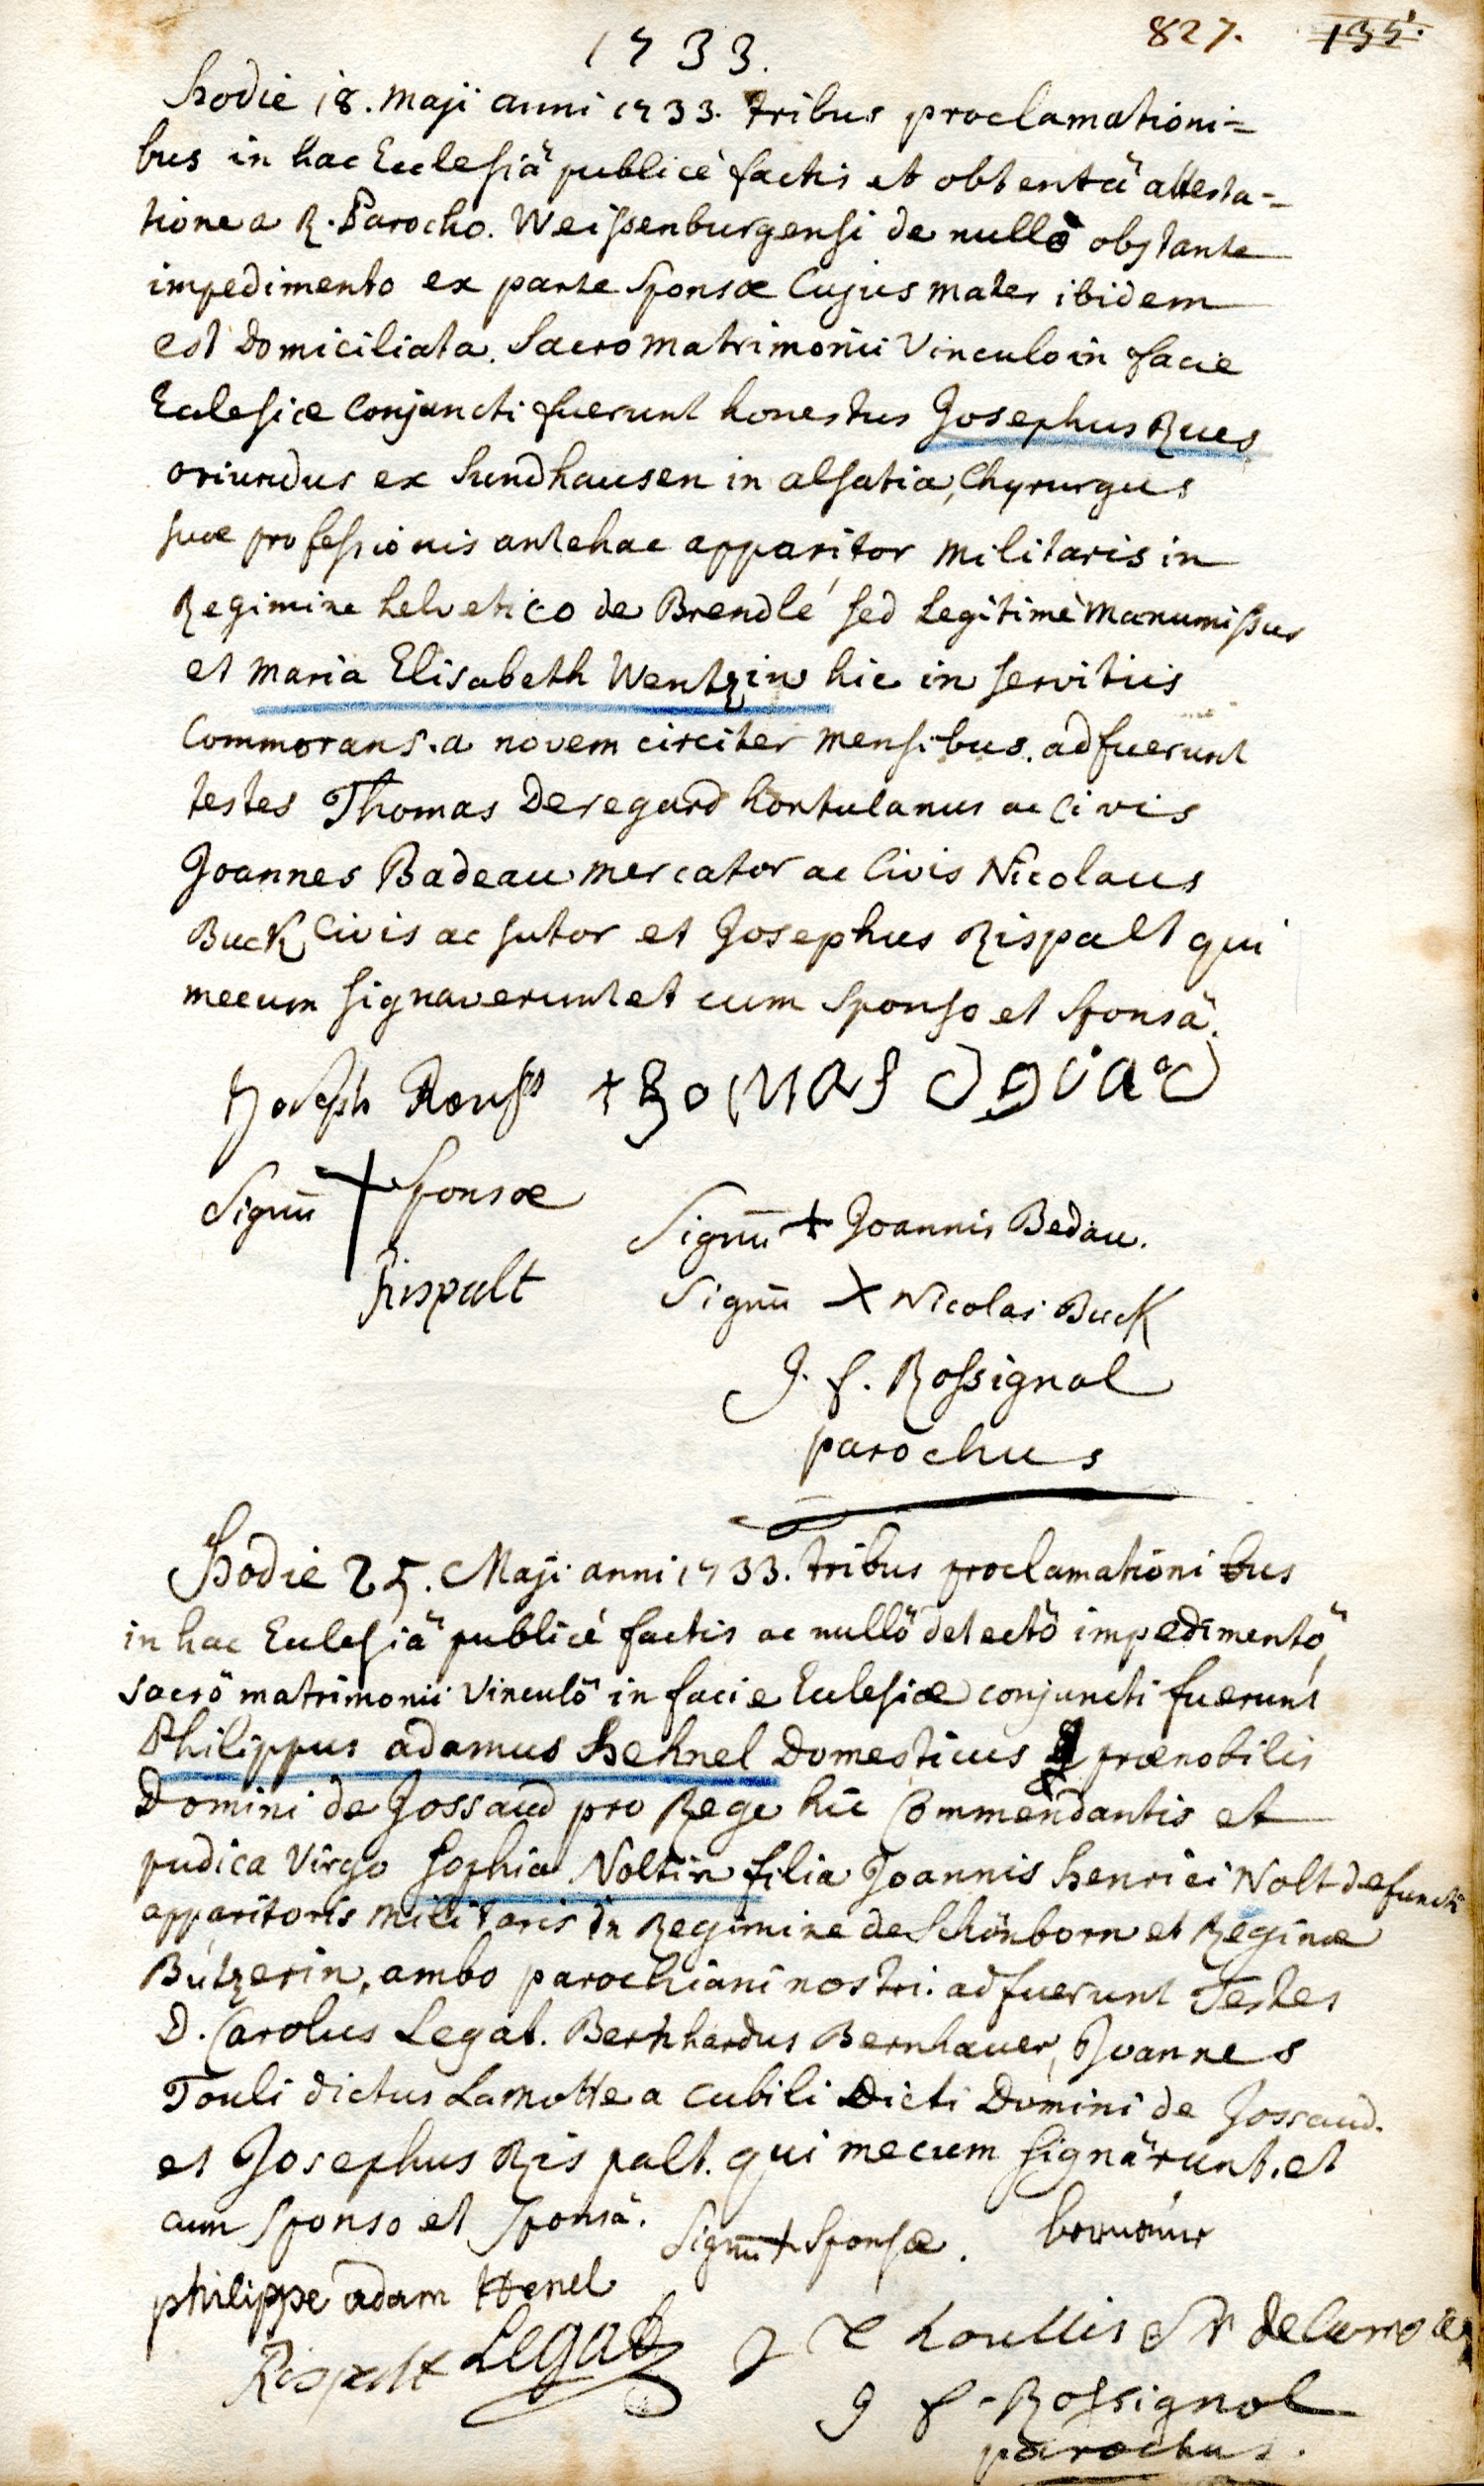 1733.
827. 135.
Hodie 18. Maji anni 1733. tribus proclamationi=
bus in hac Ecclesiâ publicè factis et obtentâ attesta=
tione a R. Parocho. Weissenburgensi de nullo obstante
impedimento ex parte Sponsæ Cujus mater ibidem
est Domiciliata. Sacro matrimonii Vinculo in facie
Ecclesiæ Conjuncti fuerunt honestus Josephus Rues
oriundus ex Sundhausen in alsatia, Chyrurgus
suæ professionis antehac apparitor militaris in
Regimine helvetico de Brendlé sed Legitimè Manumissus
et Maria Elisabeth Wentzin hic in servitiis
Commorans. a novem circiter mensibus. adfuerunt
testes Thomas Deregard hortulanus ac Civis
Joannes Badeau mercator ac Civis Nicolaus
Buck Civis ac sutor et Josephus Rispalt qui
mecum signaverunt et cum Sponso et Sponsâ.
Joseph
Signū + Sponsæ
Signū + Joannis Bedau.
Rispalt
Signū X Nicolai Buck
J. f. Rossignol
parochus
Hodie 25. Maji anni 1733. tribus proclamationibus
in hac Ecclesiâ publicè factis ac nullô detectô impedimentô,
sacrô matrimonii Vinculô in facie Ecclesiæ conjuncti fuerunt
Philippus adamus Hehnel Domesticus prænobilis
Domini de Jossaud pro Rege hic Commendantis et
pudica Virgo Sophia Noltin filia Joannis Henrici Nolt defuncti
apparitoris militaris in Regimine de Schönborn et Reginæ
Butzerin, ambo parochiani nostri. adfuerunt Testes
D. Carolus Legat. Bernhardus Bernhauer, Joannes
Touli dictus Lamotte a cubili Dicti Domini de Jossaud.
et Josephus Rispalt. qui mecum signârunt. et
cum Sponso et Sponsâ. Signū + Sponsæ.
philippe adam Henel
Rispalt Legat
J f. Rossignol
parochus.